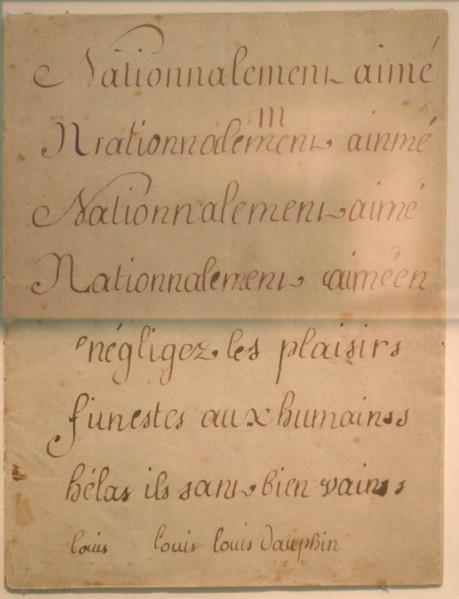 Nationnalement aimé
m
Nrationnalement ainmé
Nationnalement aimé
Nationnalement aiméen
négligez les plaisirs
funestes aux humains
hélas ils sant bien vains
louis louis louis dauphin